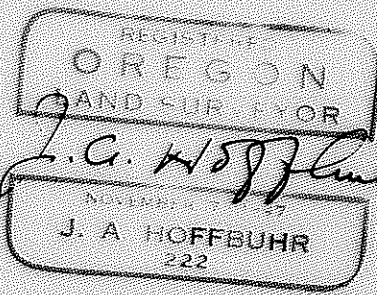 REGISTERED
OREGON
LAND SURVEYOR
J. A. Hoffbuhr
NOVEMBER
J. A HOFFBUHR
222